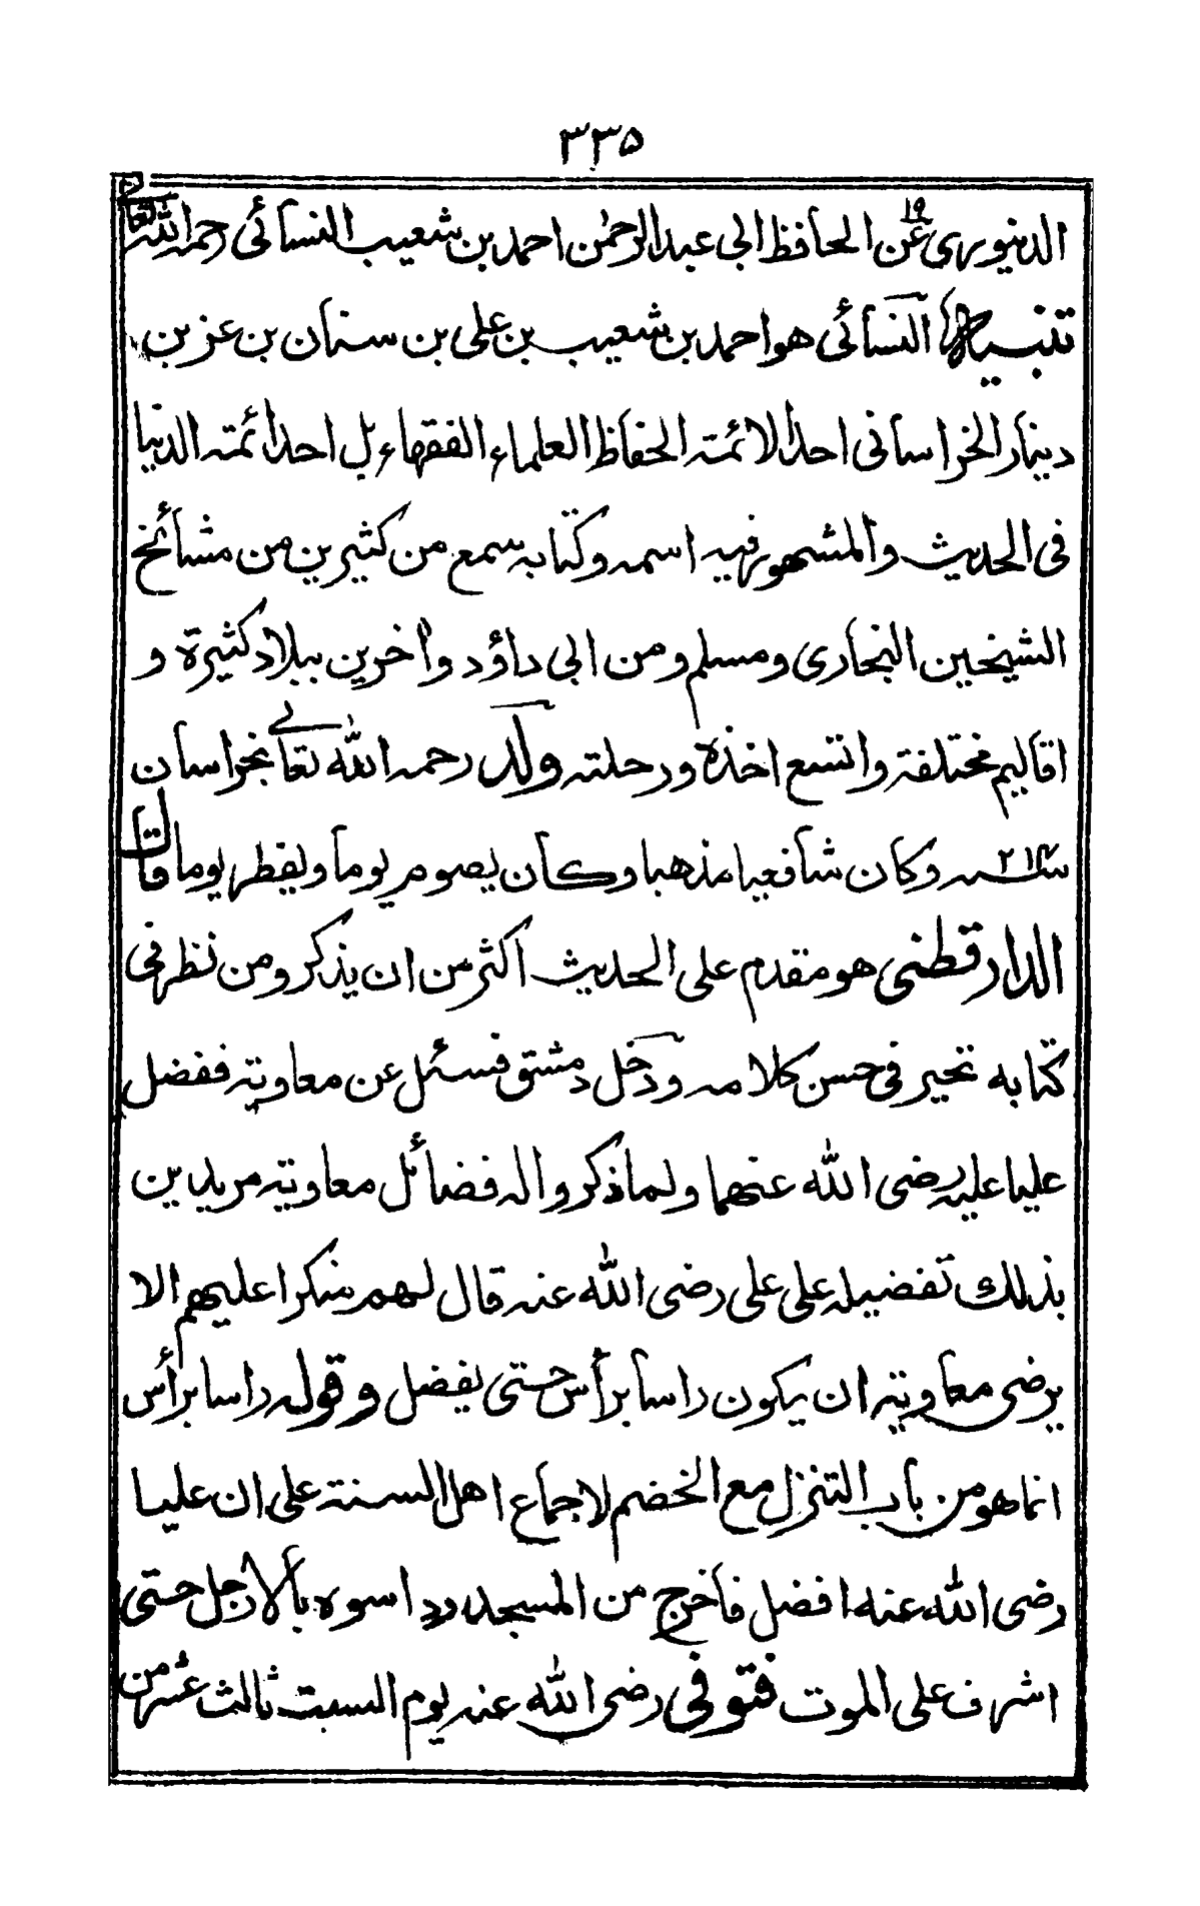 ٣٣٥
الدنيوري عن ١٩ الحافظ ابي عبد الرحمٰن احمد بن شعيب النسآئي رحمه الله تعالى
تنبيه النسآئي هو احمد بن شعيب بن علي بن سنان بن عز بن
دينار الخراساني احد الائمته الحفاظ العلماء الفقهاء بل احد ائمته الدنيا
في الحديث والمشهور فيه اسمه وكتابه سمع من كثيرين من مشآئخ
الشيخين البخاري ومسلم ومن ابي داؤد واٰخرين ببلاد كثيرة و
اقاليم مختلفة واتسع اخذه ورحلته ولد رحمه الله تعالے بخراسان
سنه ٢١٤ وكان شافعيا مذهبا وكان يصوم يوما ويفطر يوما قال
الدارقطني هو مقدم على الحديث اكثر من ان يذكر ومن نظر في
كتابه تحير في حسن كلامه ودخل دمشق فسئل عن معاوية ففضل
عليا عليه رضي الله عنهما ولما ذكروا له فضآئل معاوية مريدين
بذلك تفضيله على علي رضي الله عنه قال لهم منكرا عليهم الا
يرضى معاوية ان يكون راسا برأس حتى يفضل وقوله راسا برأس
انما هو من باب التنزل مع الخصم لاجماع اهل السنة على ان عليا
رضي الله عنه افضل فأخرج من المسجد وداسوه بالارجل حتى
اشرف على الموت فتوفي رضي الله عنه يوم السبت ثالث عشر من